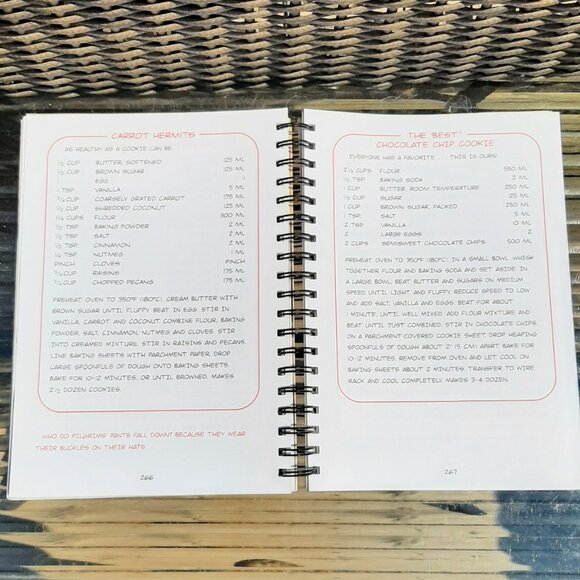 CARROT HERMITS
AS HEALTHY AS A COOKIE CAN BE.
½ CUP BUTTER, SOFTENED 125 ML
½ CUP BROWN SUGAR 125 ML
1 EGG 1
1 TSP. VANILLA 5 ML
¾ CUP COARSELY GRATED CARROT 175 ML
½ CUP SHREDDED COCONUT 125 ML
1¼ CUPS FLOUR 300 ML
½ TSP. BAKING POWDER 2 ML
½ TSP. SALT 2 ML
½ TSP. CINNAMON 2 ML
¼ TSP. NUTMEG 1 ML
PINCH CLOVES PINCH
¾ CUP RAISINS 175 ML
¾ CUP CHOPPED PECANS 175 ML
PREHEAT OVEN TO 350°F (180°C). CREAM BUTTER WITH
BROWN SUGAR UNTIL FLUFFY. BEAT IN EGG. STIR IN
VANILLA, CARROT AND COCONUT. COMBINE FLOUR, BAKING
POWDER, SALT, CINNAMON, NUTMEG AND CLOVES. STIR
INTO CREAMED MIXTURE. STIR IN RAISINS AND PECANS.
LINE BAKING SHEETS WITH PARCHMENT PAPER. DROP
LARGE SPOONFULS OF DOUGH ONTO BAKING SHEETS.
BAKE FOR 10-12 MINUTES, OR UNTIL BROWNED. MAKES
2½ DOZEN COOKIES.
WHO DO PILGRIMS' PANTS FALL DOWN? BECAUSE THEY WEAR
THEIR BUCKLES ON THEIR HATS.
266
THE "BEST"
CHOCOLATE CHIP COOKIE
EVERYONE HAS A FAVORITE . . . THIS IS OURS!
2¼ CUPS FLOUR 550 ML
½ TSP. BAKING SODA 2 ML
1 CUP BUTTER, ROOM TEMPERATURE 250 ML
½ CUP SUGAR 125 ML
1 CUP BROWN SUGAR, PACKED 250 ML
1 TSP. SALT 5 ML
2 TSP. VANILLA 10 ML
2 LARGE EGGS 2
2 CUPS SEMISWEET CHOCOLATE CHIPS 500 ML
PREHEAT OVEN TO 350°F (180°C). IN A SMALL BOWL, WHISK
TOGETHER FLOUR AND BAKING SODA AND SET ASIDE. IN
A LARGE BOWL, BEAT BUTTER AND SUGARS ON MEDIUM
SPEED UNTIL LIGHT AND FLUFFY. REDUCE SPEED TO LOW
AND ADD SALT, VANILLA AND EGGS. BEAT FOR ABOUT
1 MINUTE, UNTIL WELL MIXED. ADD FLOUR MIXTURE AND
BEAT UNTIL JUST COMBINED. STIR IN CHOCOLATE CHIPS.
ON A PARCHMENT-COVERED COOKIE SHEET, DROP HEAPING
SPOONFULS OF DOUGH ABOUT 2" (5 CM) APART. BAKE FOR
10-12 MINUTES. REMOVE FROM OVEN AND LET COOL ON
BAKING SHEETS ABOUT 2 MINUTES. TRANSFER TO WIRE
RACK AND COOL COMPLETELY. MAKES 3-4 DOZEN.
267